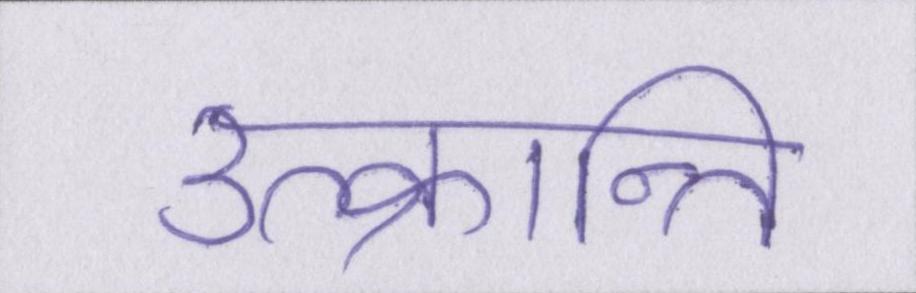 उत्क्रान्ति